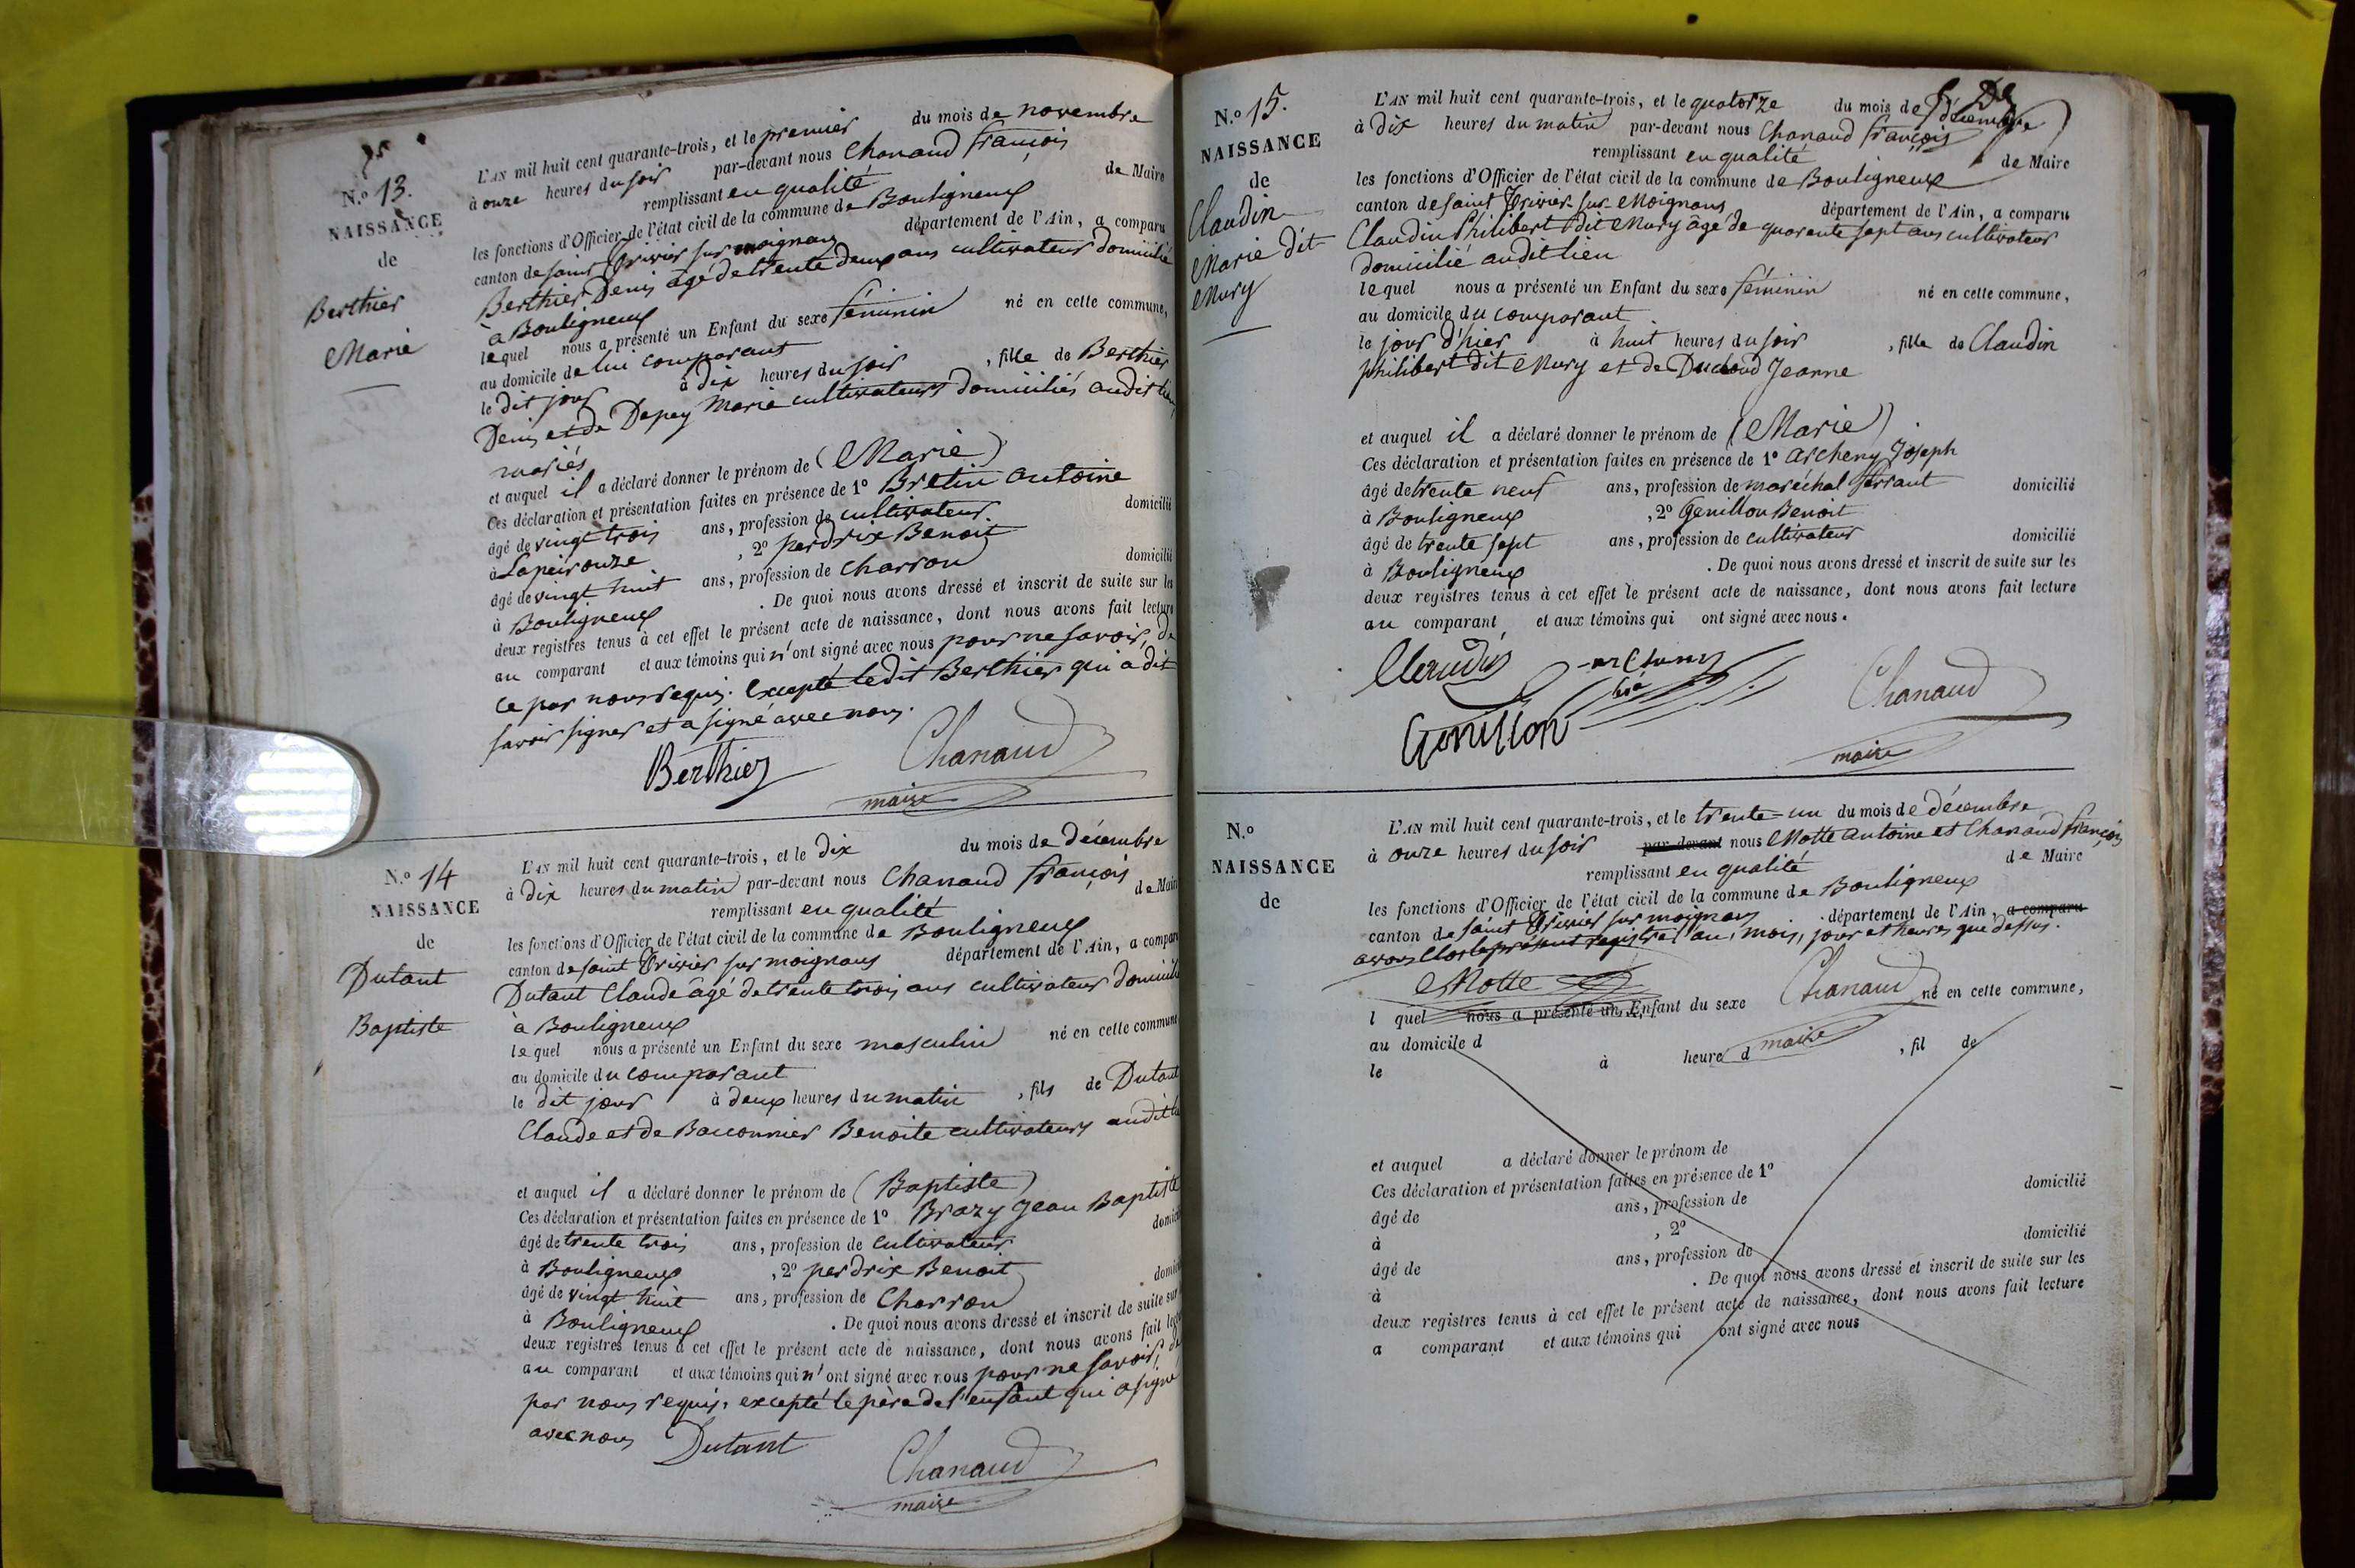 N.º 13.
NAISSANCE
de
Berthier
Marie
L'AN mil huit cent quarante-trois, et le premier du mois de novembre
à onze heures du soir par-devant nous Chanaud françois
remplissant en qualité de Maire
les fonctions d'Officier de l'état civil de la commune de Bouligneux
canton de saint Trivier sur moignans département de l'Ain, a comparu
Berthier Denis âgé de trente deux ans cultivateur domicilié
à Bouligneux
lequel nous a présenté un Enfant du sexe féminin né en cette commune,
au domicile de lui comparant
le dit jour à dix heures du soir, fille de Berthier
Denis et de Depey Marie cultivateurs domiciliés audit lieu
mariés
et auquel il a déclaré donner le prénom de (Marie)
Ces déclaration et présentation faites en présence de 1º Bretin antoine
âgé de vingt trois ans, profession de cultivateur domicilié
à Lapeirouze, 2º perdrix Benoit
âgé de vingt huit ans, profession de charron domicilié
à Bouligneux. De quoi nous avons dressé et inscrit de suite sur les
deux registres tenus à cet effet le présent acte de naissance, dont nous avons fait lecture
au comparant et aux témoins qui n'ont signé avec nous pour ne savoir, de
ce par nous requis. Excepté ledit Berthier qui a dit
savoir signer et a signé avec nous.
Berthier Chanaud
maire
N.º 14
NAISSANCE
de
Dutant
Baptiste
L'AN mil huit cent quarante-trois, et le dix du mois de décembre
à dix heures du matin par-devant nous Chanaud françois
remplissant en qualité de Maire
les fonctions d'Officier de l'état civil de la commune de Bouligneux
canton de saint Trivier sur moignans département de l'Ain, a comparu
Dutant Claude âgé de trente trois ans cultivateur domicilié
à Bouligneux
lequel nous a présenté un Enfant du sexe masculin né en cette commune
au domicile du comparant
le dit jour à deux heures du matin, fils de Dutant
Claude et de Baconnier Benoite cultivateurs audit lieu
et auquel il a déclaré donner le prénom de (Baptiste)
Ces déclaration et présentation faites en présence de 1º Brazy Jean Baptiste
âgé de trente trois ans, profession de cultivateur domicilié
à Bouligneux, 2º perdrix Benoit
âgé de vingt huit ans, profession de Charron domicilié
à Bouligneux. De quoi nous avons dressé et inscrit de suite sur
deux registres tenus à cet effet le présent acte de naissance, dont nous avons fait lecture
au comparant et aux témoins qui n'ont signé avec nous pour ne savoir, de
par nous requis, excepté le père de l'enfant qui a signé
avec nous Dutant
Chanaud
maire
N.º 15.
NAISSANCE
de
Claudin
Marie dit
Mury
L'AN mil huit cent quarante-trois, et le quatorze du mois de décembre
à dix heures du matin par-devant nous Chanaud françois
remplissant en qualité de Maire
les fonctions d'Officier de l'état civil de la commune de Bouligneux
canton de saint Trivier sur Moignans département de l'Ain, a comparu
Claudin Philibert dit Mury âgé de quarente sept ans cultivateur
domicilié audit lieu
lequel nous a présenté un Enfant du sexe féminin né en cette commune,
au domicile du comparant
le jour d'hier à huit heures du soir, fille de Claudin
philibert dit Mury et de Ducloud Jeanne
et auquel il a déclaré donner le prénom de (Marie)
Ces déclaration et présentation faites en présence de 1º Archeny Joseph
âgé de trente neuf ans, profession de maréchal ferrant domicilié
à Bouligneux, 2º Genillon Benoit
âgé de trente sept ans, profession de cultivateur domicilié
à Bouligneux. De quoi nous avons dressé et inscrit de suite sur les
deux registres tenus à cet effet le présent acte de naissance, dont nous avons fait lecture
au comparant et aux témoins qui ont signé avec nous.
Claudin Chanaud
Genillon
maire
N.º
NAISSANCE
de
L'AN mil huit cent quarante-trois, et le trente-un du mois de décembre
à onze heures du soir par-devant nous Motte antoine et Chanaud françois
remplissant en qualité de Maire
les fonctions d'Officier de l'état civil de la commune de Bouligneux
canton de saint Trivier sur moignans département de l'Ain, a comparu
avons clos le présent registre l'an, mois, jour et heures que dessus.
Motte Chanaud
l quel nous a présenté un Enfant du sexe né en cette commune,
au domicile d maire
le à heure d, fil de
et auquel a déclaré donner le prénom de
Ces déclaration et présentation faites en présence de 1º
âgé de ans, profession de domicilié
à, 2º
âgé de ans, profession de domicilié
à. De quoi nous avons dressé et inscrit de suite sur les
deux registres tenus à cet effet le présent acte de naissance, dont nous avons fait lecture
a comparant et aux témoins qui ont signé avec nous